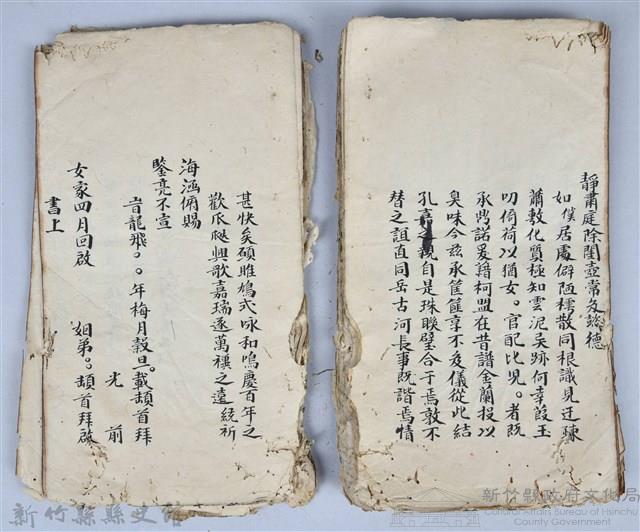 靜肅庭除閨壺常欽懿德
如僕居處僻陋樗散同根識見迂疎
蕭敷化質極知雲泥矣跡何幸葭玉
叨倚荷以猶女。官配比児。者既
承諾爰藉柯盟在昔譜金蘭投以
臭味今茲承筐篚享不及儀從此結
孔之親自是珠聯璧合于焉敦不
替之誼直同岳古河長事既諧焉情
甚快矣碩雎鳩式咏和鳴慶百年之
歡瓜瓞興歌嘉瑞遂萬禩之遠統祈
海涵俯賜
鑒亮不宣
旹龍飛。。年梅月穀旦。載頡首拜
光前
女家四月回啟 姻弟。。頡首拜啟
書上
新竹縣縣史館
新竹縣政府文化局
Cultural Affairs Bureau of Hsinchu
County Government